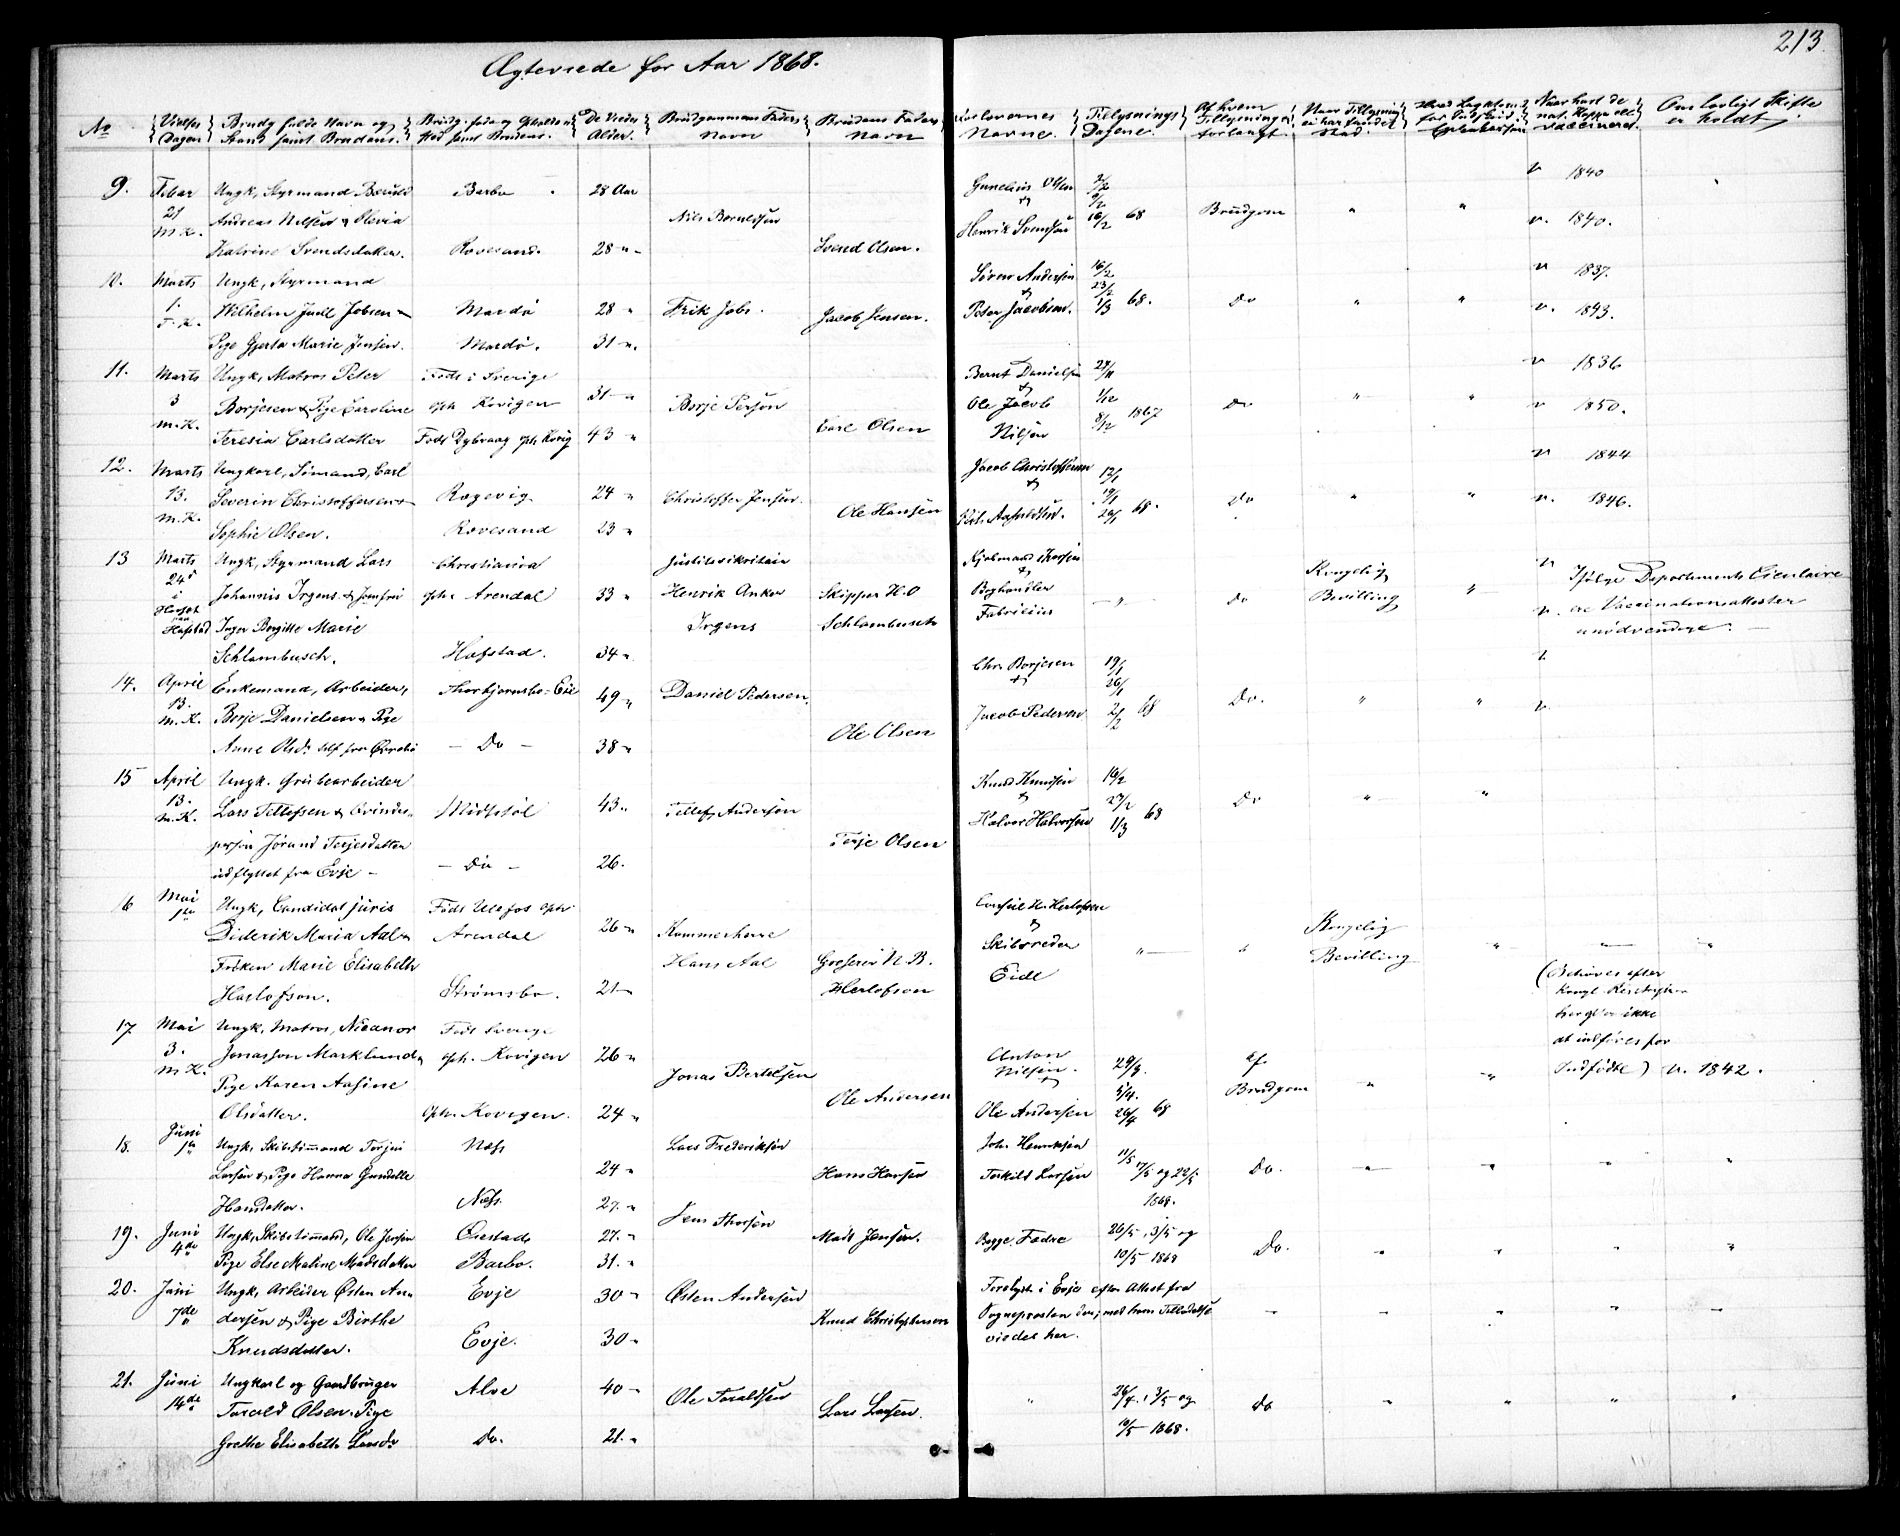 213.
Ægteviede for Aar 1868.
No Vielses Dagen Brudg. fulde Navn og Stand samt Brudens. De Viedes Alder. Brudgommens Faders Navn Brudens Faders Navn Forlovernes Navne. Tillysnings Dagene. Af hvem Tillysningen forlangt. Om lovligt Skifte er holdt.
9. Febar Ungk, Styrmand Barbo 28 Aar Gunelius Olsen 2/2 v 1840
21 Andreas Nilsen & Olevia Nils 9/2
M.K. Henrik Svendsen 16/2 68 Brudgom " " v. 1840.
Katrine Svendsdatter. Rovesand. 28 " Svend Olsen.
10. Marts Ungk, Styrmand Søren Andersen 16/2 v 1837.
1. 23/2
F.K. Wilhelm Juell Jobsen Mardø 28 " Erik Jobs. Jacob Jensen. Peter Jacobsen. 1/3 68. Do " " v. 1843.
Pige Gjerta Marie Jensen. Mardø. 31 "
11. Marts Ungk, Matros Peter Født i Sverige Bernt Danielsen 24/11 v 1836
3 Borjesen & Pige Caroline oph Kovigen 31 " Borje Person Ole Jacob 1/12 Do " " v 1850.
M.K. Teresia Carlsdatter Født Dybvaag oph Kovig 43 " Carl Olsen Nilsen 8/12 1867
12. Marts Ungkarl, Sømand, Carl Jacob Christoffersen 12/1 v 1844
13. Severin Christoffersen & Rægevig 24 " Christoffer Jensen. 19/1 Do " " v. 1846.
M.K. Sophie Olsen. Rovesand 23 " Ole Hansen 26/1 68.
13 Marts Ungk, Styrmand Lars Christiania Kongelig v
24de Johannis Irgens & Jomfru oph. Arendal 33 " Henrik Anker Skipper H.O Boghandler " Do Bevilling " Ifølge Departements Circulaire
i Huset paa Hafstad Inger Birgitte Marie Irgens Schlambusch Fabricius v. ere Vaccinationsattester
Schlambusch. Hafstad. 34 " unødvendige.
14. April Enkemand, Arbeider, 49 " Daniel Pedersen. Chr. Borjesen 19/1 v
13. 26/1
M.K. Borje Danielsen & Pige Jacob Pedersen 2/2 68 Do. " " v
Anne — Do — 38 " Ole Olsen
15 April Ungk. Grubearbeider Knud Knudsen 16/2
13. Lars Tellefsen & Qvindes- Midstøl 43 " Tellef Andersen 23/2 Do " "
M.K. person Jørund Terjesdatter Terje Olsen Halvor Halvorsen 1/3 68
udflyttet fra Evje — — Do — 26.
16 Mai Ungk, Candidat juris Født Ulefos oph Consul H. Herlofson
1ste Diderik Maria Aal & Arendal 26 " Kammerherre Skibsreder " " Kongelig " " "
Frøken Marie Elisabeth Hans Aal Grosserer N.B. Eide Bevilling
Herlofson. Strømsbo. 21 " Herlofson (Behøves efter
17. Mai Ungk, Matros, Nicanor Født Sverige
3. Jonasson Marklund & oph. Kovigen 26 " Anton 29/3. af at indføres for
M.K. Pige Karen Aasine Jonas Bertelsen Nilsen. 5/4. Brudgom " " Indfødte) v. 1842.
Olsdatter. oph. Kovigen. 24 " Ole Andersen Ole Andersen 26/4 68
18. Juni Ungk, Skibstømmand Torjus Næs Lars Frederiksen Joh. Henriksen 11/5
1ste Larsen & Pige Hanna Gundelle 24 " Hans Hansen Terkild Larsen 17/5 og 22/5 Do. " " " "
Hansdatter. Næs. 27. " 1868.
19. Juni Ungk, Skibstømmand, Ole Jensen Øiestad 27. " Jens Thorsen Mads Jensen. Begge Fædre 26/5, 3/5 og Do. " " " "
4de Pige Else Maline Madsdatter Barbo. 31. " 10/5 1868
20. Juni Ungk, Arbeider Østen An- Evje 30 " Østen Andersen Forelyst i Evje efter Attest fra
7de dersen & Pige Birthe Knud Christophersen Sognepresten der, med hvem Tilladelse " " " "
Knudsdatter. Evje. 30 " viedes her.
21. Juni Ungkarl og Gaardbruger Alve 40 " Ole Toraldsen " 26/4, 3/5 og Do " " " "
14de Torald Olsen. Pige Lars Larsen. 10/5 1868.
Grethe Elisabeth Larsdr Do. 21. "